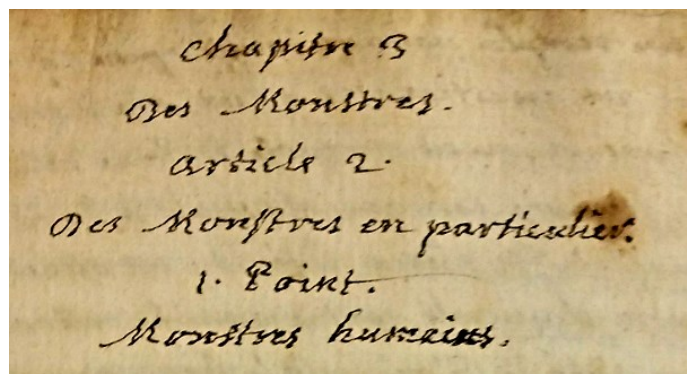 Chapitre 3
Des Monstres.
article 2.
Des Monstres en particulier.
1. Point.
Monstres humains.